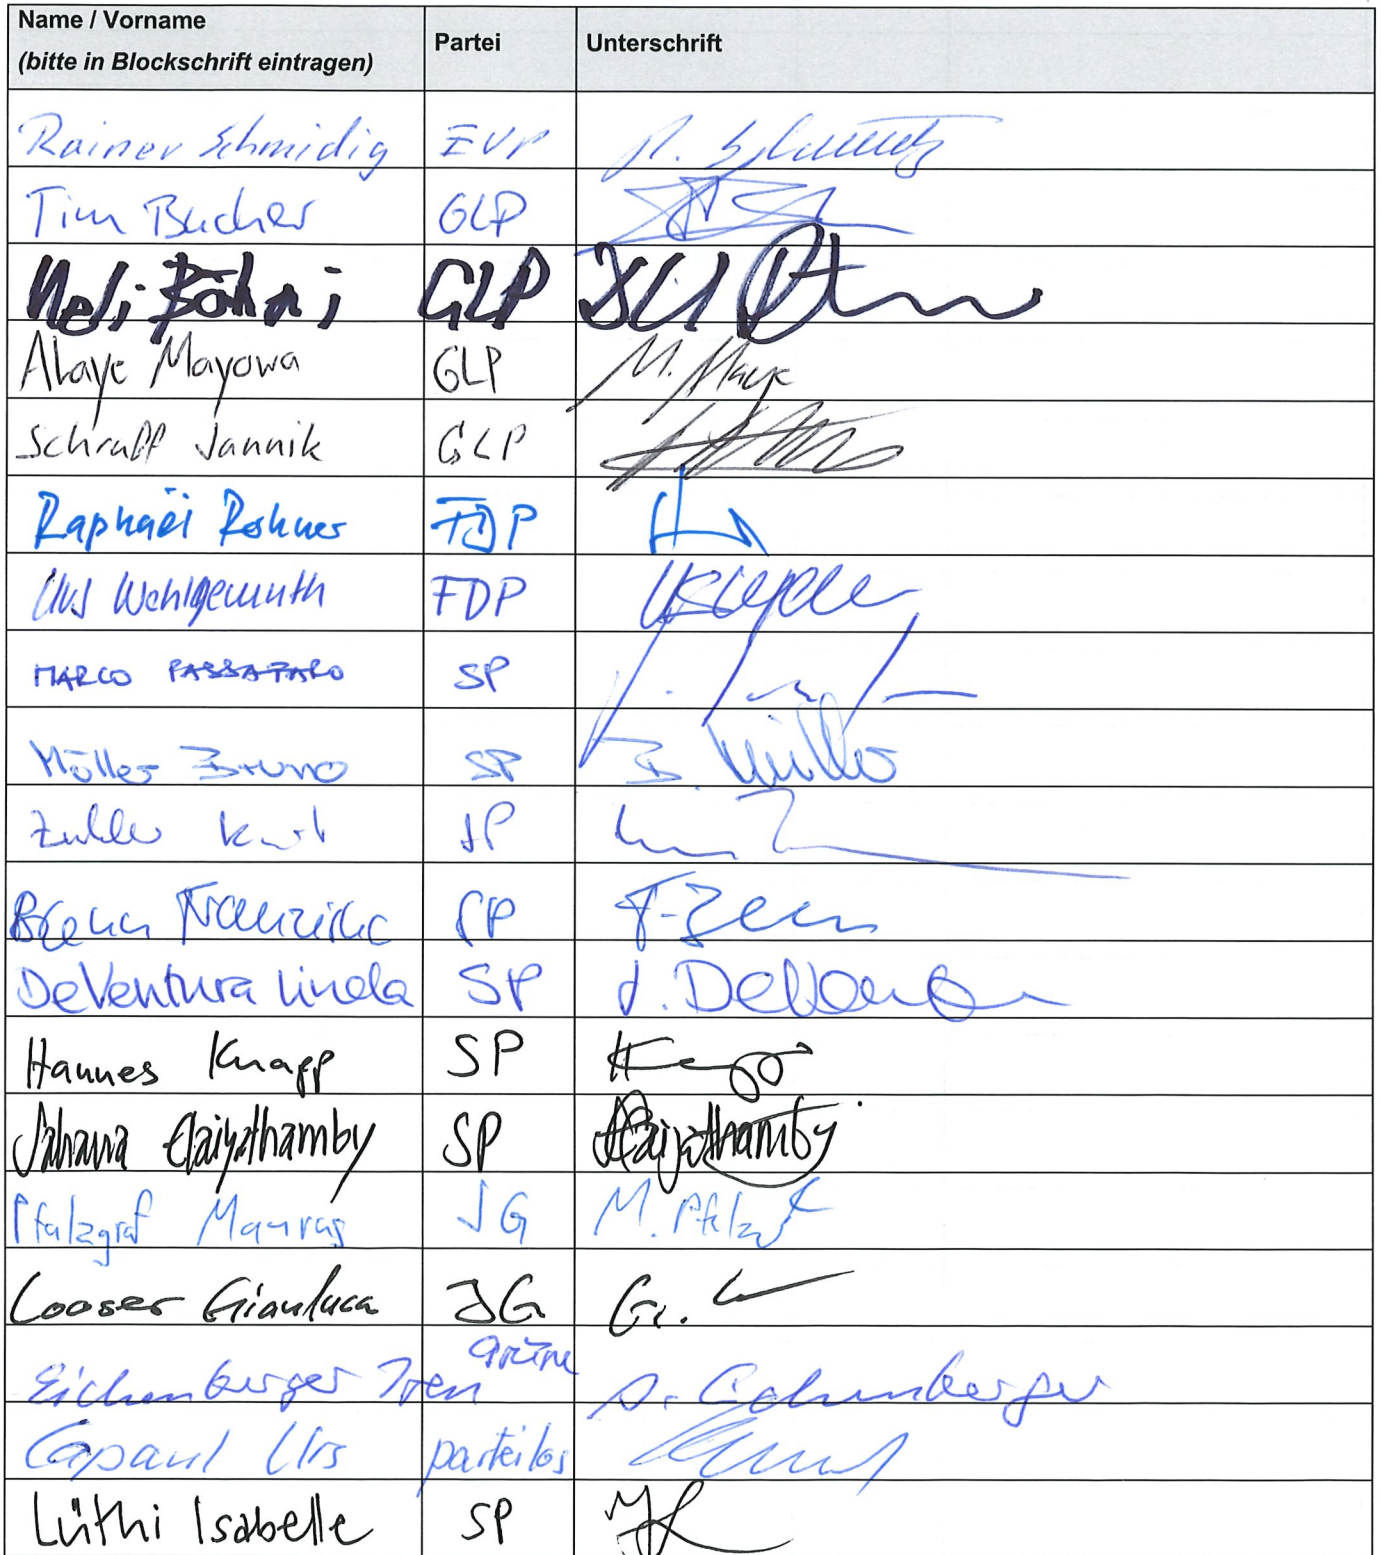 Name / Vorname Partei Unterschrift
(bitte in Blockschrift eintragen)
Rainer Schmidig EVP R. Schmidig
Tim Bucher GLP
Böhni GLP
Alaye Mayowa GLP M. Alaye
Schraff Jannik GLP
Raphaël Rohner FDP
Urs Wohlgemuth FDP
MARCO PASSAFARO SP
Müller Bruno SP B. Müller
Zubler Kurt SP
Brenn Franziska SP F. Brenn
De Ventura Linda SP L. De Ventura
Hannes Knapp SP
Sahana Elaiyathamby SP Elaiyathamby
Pfalzgraf Maurus JG M. Pfalzgraf
Looser Gianluca JG G. L
Eichenberger Iren Grüne I. Eichenberger
Capaul Urs parteilos
Lüthi Isabelle SP